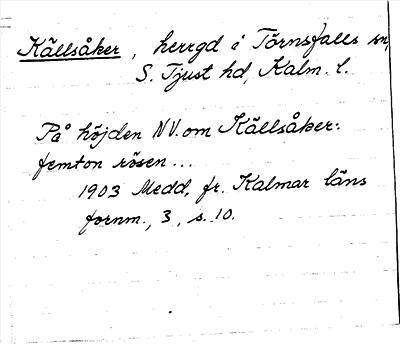 Källsåker, herrgd i Törnsfalls sn,
S. Tjust hd, Kalm. l.
På höjden NV. om Källsåker:
femton rösen...
1903 Medd. fr. Kalmar läns
fornm., 3, s. 10.